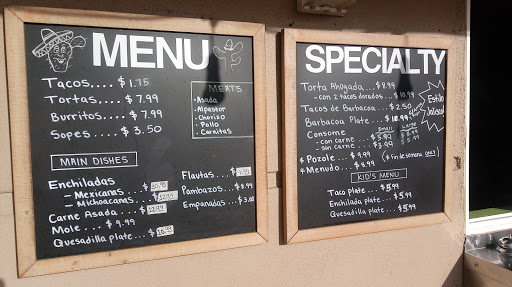 MENU
Tacos.... $1.75
Tortas.... $7.99
Burritos.... $7.99
Sopes.... $3.50
MEATS
- Asada
- Alpastor
- Chorizo
- Pollo
- Carnitas
MAIN DISHES
Enchiladas
- Mexicanas..
- Michoacanas..
Carne Asada..
Mole... $9.99
Quesadilla plate...
Flautas....
Pambazos... $8.99
Empanadas... $3.00
SPECIALTY
Torta Ahogada.. $8.99
- con 2 tacos dorados.. $10.99
Tacos de Barbacoa.. $2.50
Barbacoa Plate.. $10.99
Estilo Jalisco!
Consome Small Large
- con carne
- sin carne
* Pozole.. $9.99
* Menudo.. $8.99
* fin de semana ONLY
KID'S MENU
Taco plate.. $5.99
Enchilada plate.. $5.99
Quesadilla plate.. $5.99